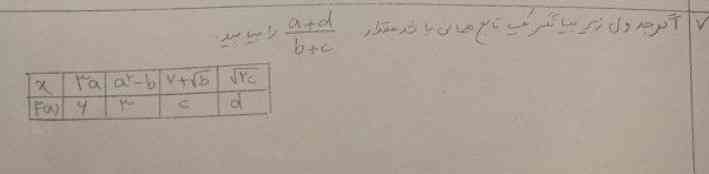 ۷ اگر جدول زیر بیانگر یک تابع همانی باشد مقدار \frac{a+d}{b+c} را بیابید.
x | ۳a | a²-b | ۷+√b | √۲c
F(x) | ۶ | ۳ | c | d